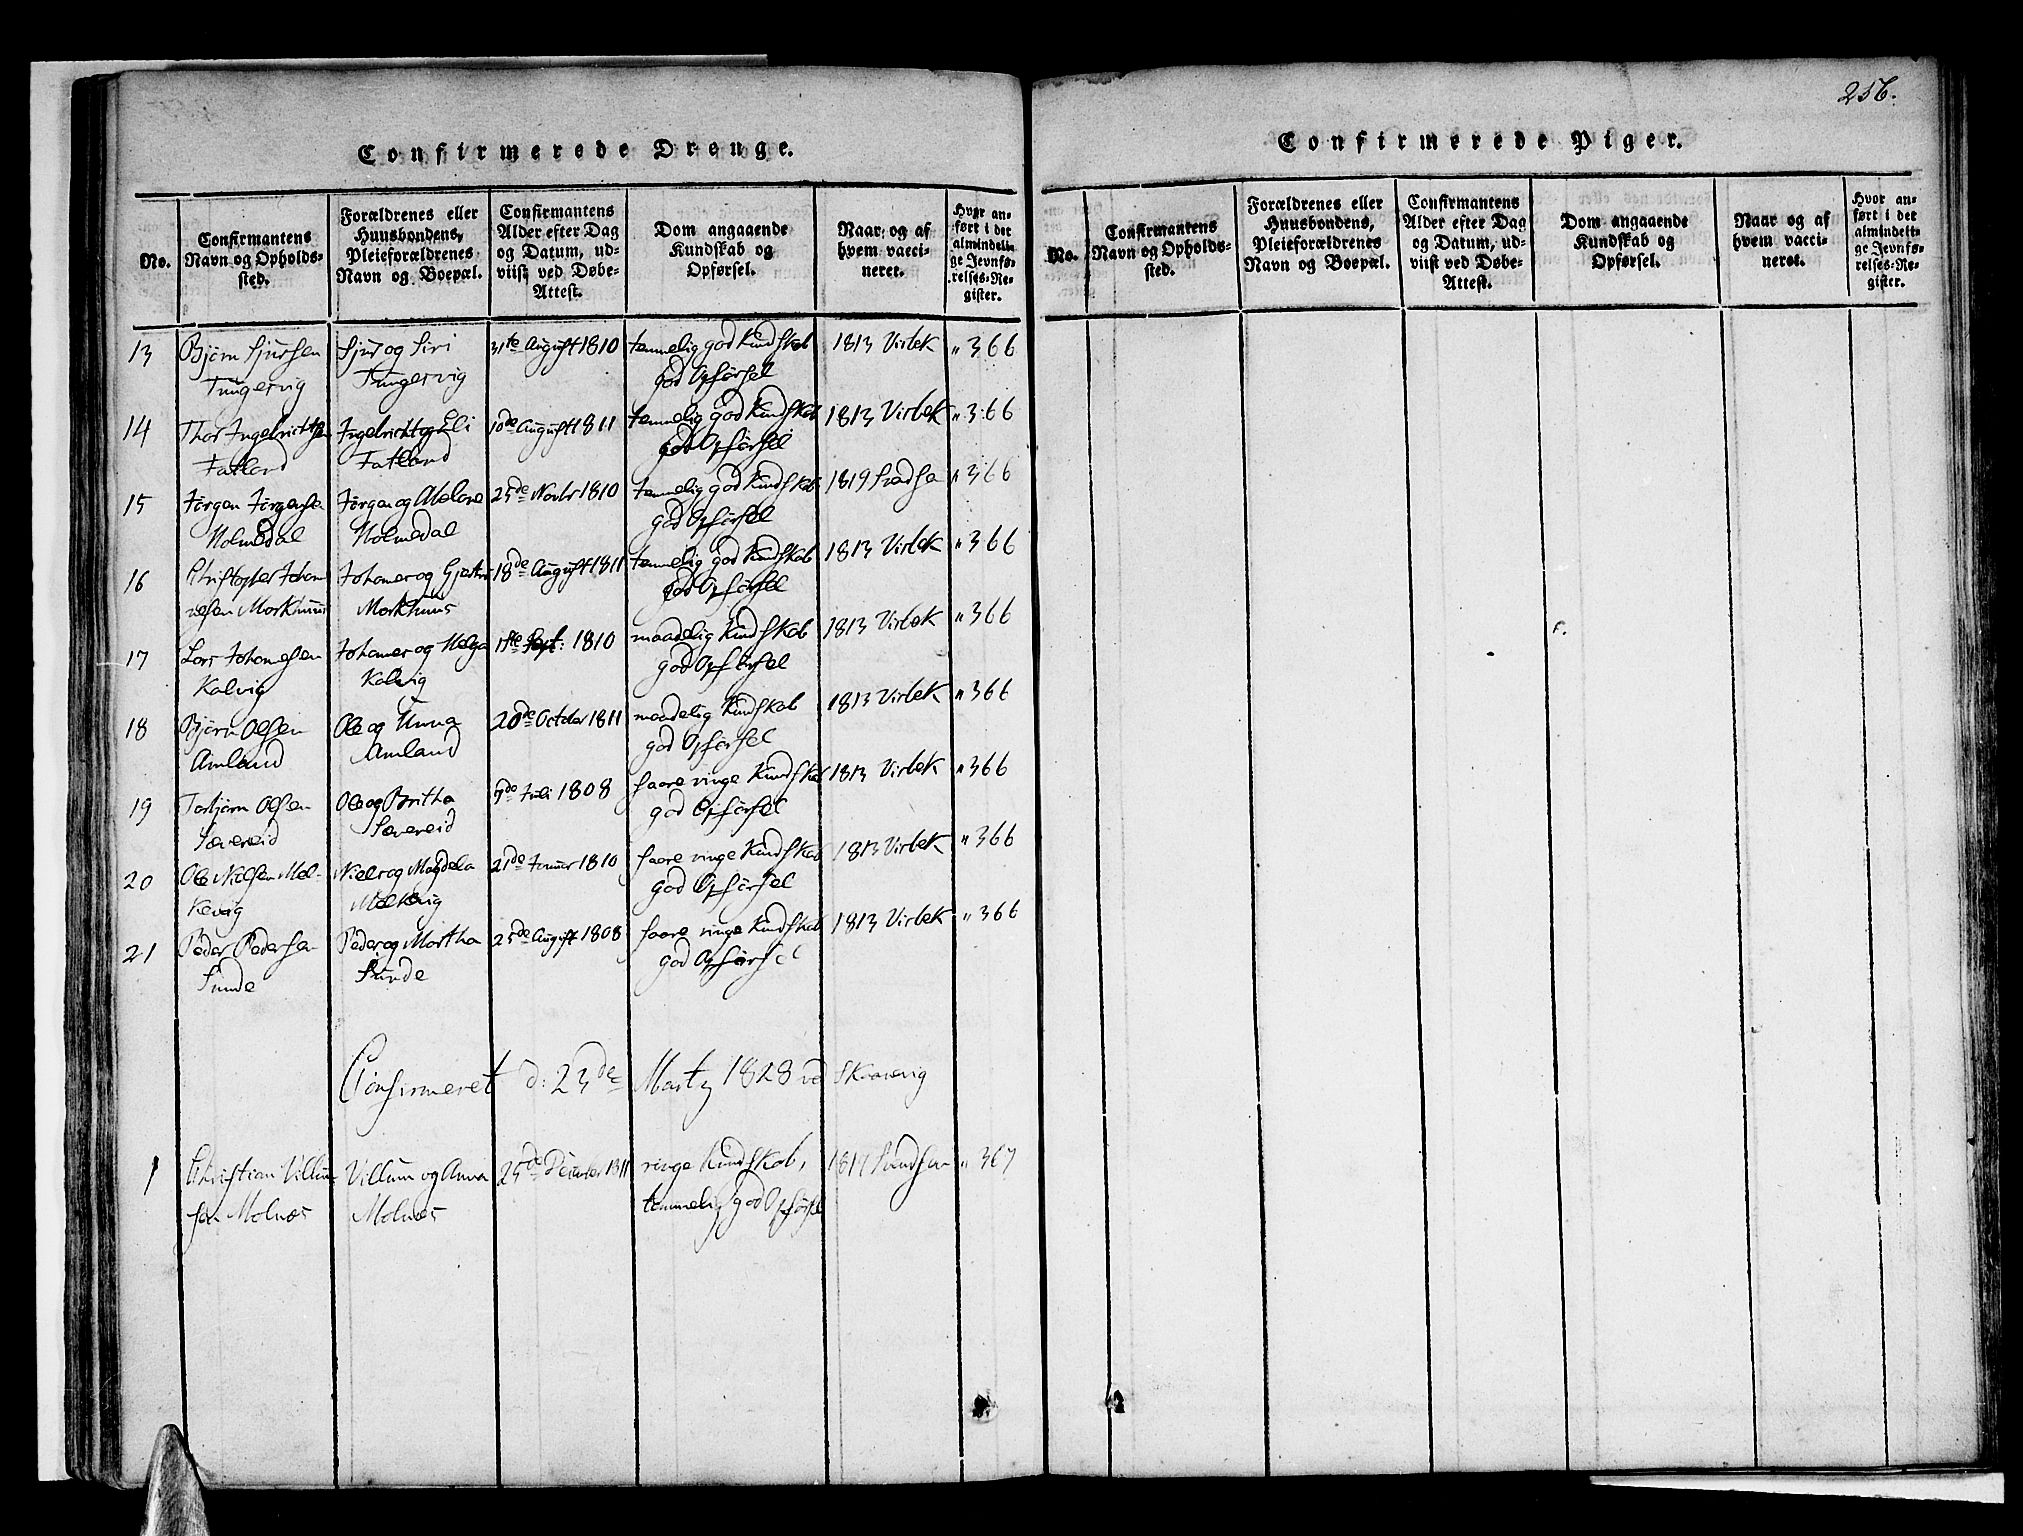 256.
Confirmerede Drenge.
No.
Confirmantens Navn og Opholdssted.
Forældrenes eller Huusbondens, Pleieforældrenes Navn og Boepæl.
Confirmantens Alder efter Dag og Datum, udviist ved Døbe-Attest.
Dom angaaende Kundskab og Opførsel.
Naar, og af hvem vaccineret.
Hvor anført i det almindelige Jevnførelses-Register.
13 Bjørn Sjursen Sjur og Siri 31te August 1810 temmelig god Kundskab 1813 Virbek " 366
Tungesvig Tungesvig god Opførsel
14 Thor Ingebrictsen Ingebricht og Eli 10de August 1811 temmelig god Kundskab 1813 Virbek " 366
Fatland Fatland god Opførsel
15 Jørgen Jørgensen Jørgen og Abelone 25de Novbr 1810 temmelig god Kundskab 1819 Svendsen " 366
Holmedal Holmedal god Opførsel
16 Christopher Johan- Johannes og Gjertru 18de August 1811 temmelig god Kundskab 1813 Virbek " 366
nesen Markhuus Markhuus god Opførsel
17 Lars Johannesen Johannes og Helga Sept: 1810 maadelig Kundskab 1813 Virbek " 366
Kalvig Kalvig god Opførsel
18 Bjørn Olsen Ole og Unna 20de October 1811 maadelig Kundskab 1813 Virbek " 366
Amland Amland god Opførsel
19 Torbjørn Olsen Ole og Britha Juli 1808 saare ringe Kundskab 1813 Virbek " 366
Sævereid Sævereid god Opførsel
20 Ole Nielsen Mel- Niels og Magdela 21de Januar 1810 saare ringe Kundskab 1813 Virbek " 366
kevig Melkevig god Opførsel
21 Peder Pedersen Peder og Martha 25de August 1808 saare ringe Kundskab 1813 Virbek " 366
Sunde Sunde god Opførsel
Confirmeret d: 23de Marty 1828 ved Skaanevig
1 Christian Villum- Villum og Anna 25de December 1811 ringe Kundskab, Svendsen " 367
sen Molnæs Molnæs temmelig god Opførsel
Confirmerede Piger.
No.
Confirmantens Navn og Opholdssted.
Forældrenes eller Huusbondens, Pleieforældrenes Navn og Boepæl.
Confirmantens Alder efter Dag og Datum, udviist ved Døbe-Attest.
Dom angaaende Kundskab og Opførsel.
Naar og af hvem vaccineret.
Hvor anført i det almindelige Jevnførelses-Register.